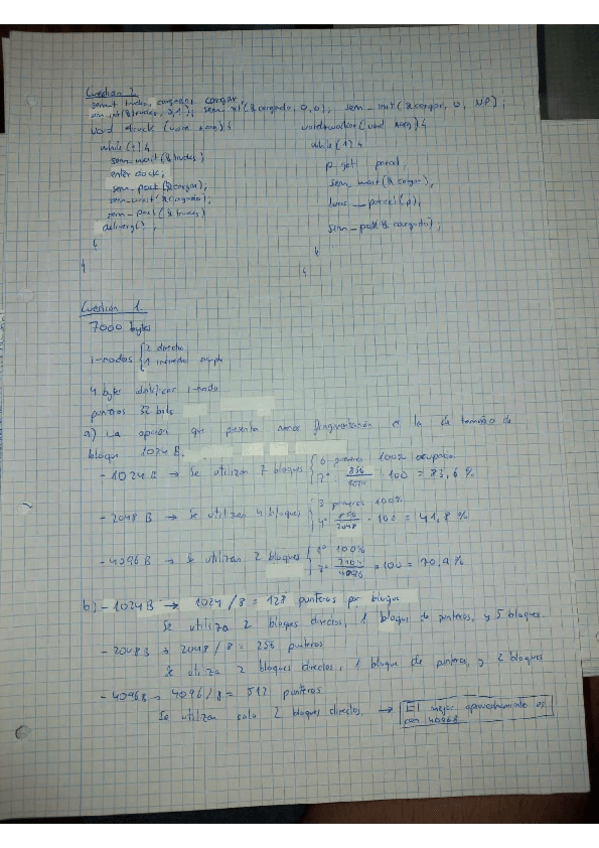 Cuestion 2
sem_t trucks, cargado, cargar;
sem_init(&trucks, 0,1); sem_init(&cargado, 0,0); sem_init(&cargar, 0, NP);
void truck (void *arg) {
while(1) {
sem_wait(&trucks);
enter dock;
sem_post(&cargar);
sem_wait(&cargado);
sem_post(&trucks)
delivery();
}
}
void worker (void *arg) {
while(1) {
p = get parcel;
sem_wait(&cargar);
_parcel(p);
sem_post(&cargado);
}
}
Cuestion 1
7000 bytes
i-nodos { 2 directo
1 indirecto simple
4 byte identificar i-nodo
punteros 32 bits
a) La opción que presenta menos fragmentación es la de tamaño de
bloque 1024 B.
- 1024 B → Se utilizan 7 bloques { 6 primeros 100% ocupados
7º 856/1024 · 100 = 83,6 %
- 2048 B → Se utilizan 4 bloques { 3 primeros 100%
4º 856/2048 · 100 = 41,8 %
- 4096 B → Se utilizan 2 bloques { 1º 100%
2º 2904/4096 · 100 = 70,9 %
b) - 1024 B → 1024 / 8 = 128 punteros por bloque
Se utiliza 2 bloques directos, 1 bloque de punteros, y 5 bloques.
- 2048 B → 2048 / 8 = 256 punteros
Se utiliza 2 bloques directos, 1 bloque de punteros, y 2 bloques
- 4096 B → 4096 / 8 = 512 punteros
Se utilizan solo 2 bloques directos. → El mejor aprovechamiento es
con 4096B